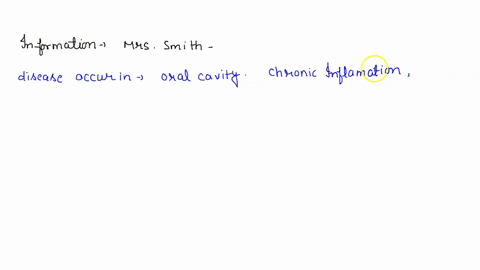 Information → Mrs. Smith -
disease accur in → oral cavity. chronic Inflamation,